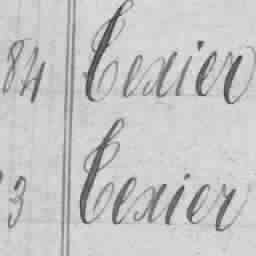 84 Texier
3 Texier